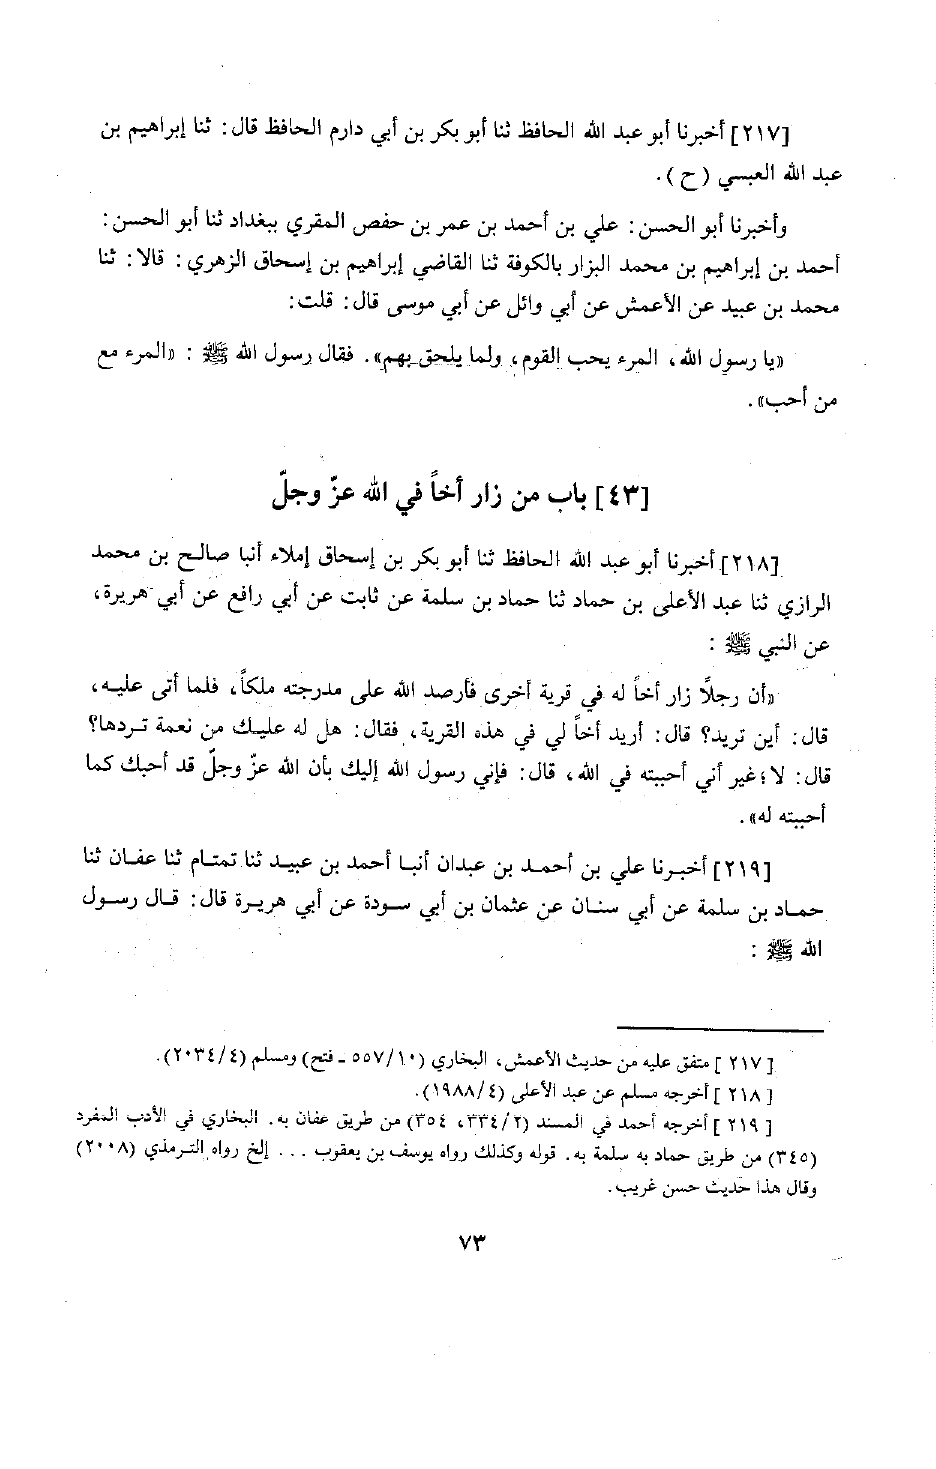 [٢١٧] أخبرنا أبو عبد الله الحافظ ثنا أبو بكر بن أبي دارم الحافظ قال: ثنا إبراهيم بن
عبد الله العبسي (ح).
وأخبرنا أبو الحسن: علي بن أحمد بن عمر بن حفص المقري ببغداد ثنا أبو الحسن:
أحمد بن إبراهيم بن محمد البزار بالكوفة ثنا القاضي إبراهيم بن إسحاق الزهري: قالا: ثنا
محمد بن عبيد عن الأعمش عن أبي وائل عن أبي موسى قال: قلت:
«يا رسول الله، المرء يحب القوم، ولما يلحق بهم». فقال رسول الله ﷺ: «المرء مع
من أحب».
[٤٣] باب من زار أخاً في الله عزّ وجلّ
[٢١٨] أخبرنا أبو عبد الله الحافظ ثنا أبو بكر بن إسحاق إملاء أنبا صالح بن محمد
الرازي ثنا عبد الأعلى بن حماد ثنا حماد بن سلمة عن ثابت عن أبي رافع عن أبي هريرة،
عن النبي ﷺ:
«أن رجلًا زار أخاً له في قرية أخرى فأرصد الله على مدرجته ملكاً، فلما أتى عليه،
قال: أين تريد؟ قال: أريد أخاً لي في هذه القرية، فقال: هل له عليك من نعمة تردها؟
قال: لا؛ غير أني أحببته في الله، قال: فإني رسول الله إليك بأن الله عزّ وجلّ قد أحبك كما
أحببته له».
[٢١٩] أخبرنا علي بن أحمد بن عبدان أنبا أحمد بن عبيد ثنا تمتام ثنا عفان ثنا
حماد بن سلمة عن أبي سنان عن عثمان بن أبي سودة عن أبي هريرة قال: قال رسول
الله ﷺ:
[٢١٧] متفق عليه من حديث الأعمش، البخاري (٥٥٧/١٠ - فتح) ومسلم (٢٠٣٤/٤).
[٢١٨] أخرجه مسلم عن عبد الأعلى (١٩٨٨/٤).
[٢١٩] أخرجه أحمد في المسند (٣٣٤/٢، ٣٥٤) من طريق عفان به. البخاري في الأدب المفرد
(٣٤٥) من طريق حماد به سلمة به. قوله وكذلك رواه يوسف بن يعقوب ... إلخ رواه الترمذي (٢٠٠٨)
وقال هذا حديث حسن غريب.
٧٣